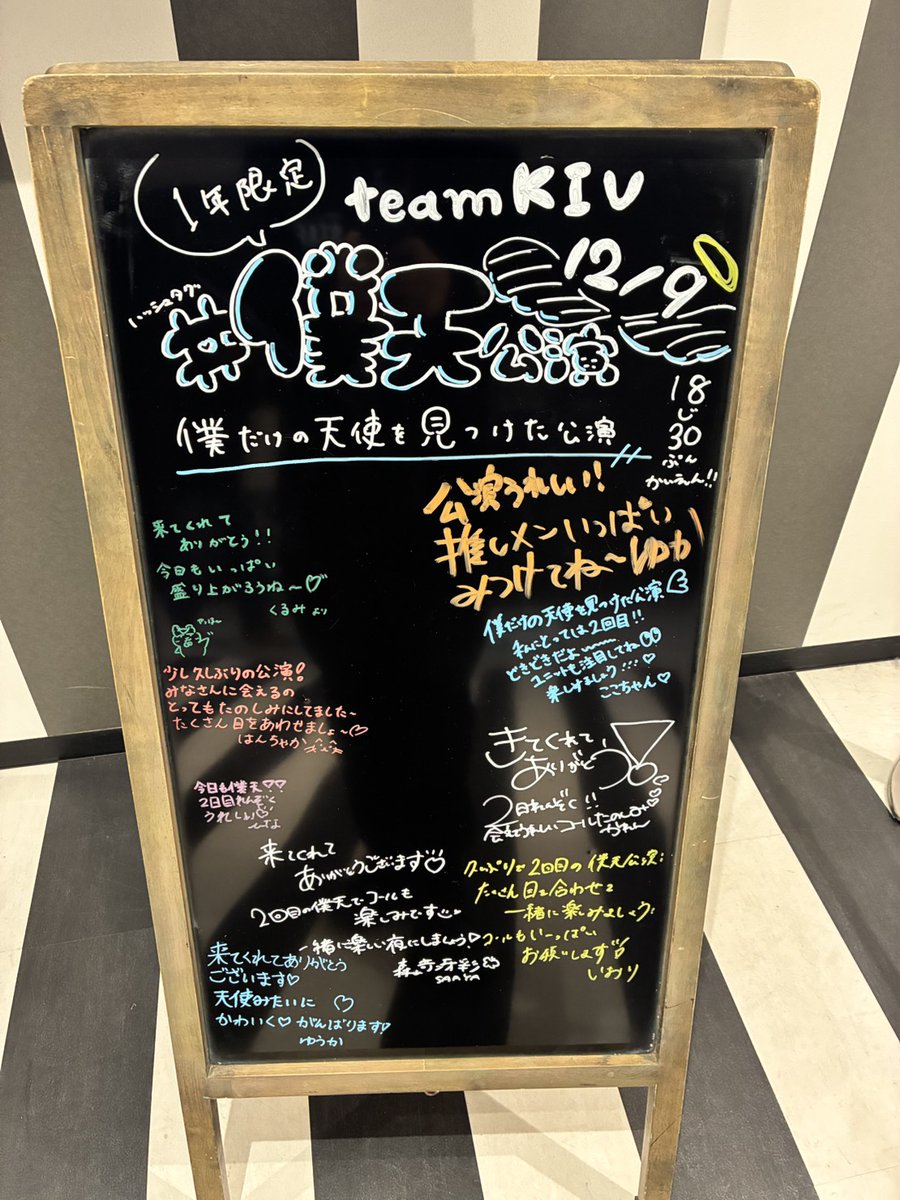 1年限定
teamKIV
12/9
ハッシュタグ
#僕天公演
18
じ
30
ぷん
かいえん!!
僕だけの天使を見つけた公演
公演うれしい!
推しメンいっぱい
みつけてね〜ゆか
来てくれて
ありがとう!!
今日もいっぱい
盛り上がろうね〜♡
くるみより
僕だけの天使を見つけた公演
私にとっては2回目!!
どきどきだよ
ユニットも注目してね
楽しみましょう!!!♡
ここちゃん♡
少し久しぶりの公演!
みなさんに会えるの
とってもたのしみにしてました〜
たくさん目をあわせましょ〜♡
はんちゃか
きてくれて
ありがとう
2日れんぞく!!
今日も僕天♡♡
2日目れんぞく
うれしい♡
来てくれて
ありがとうございます♡
2回目の僕天でコールも
楽しみです
一緒に楽しい夜にしましょう♡
SAAYA
久しぶりで2回目の僕天公演!
たくさん目を合わせて
一緒に楽しみましょう!
コールもい〜っぱい
お願いします♡
いおり
来てくれてありがとう
ございます♡
天使みたいに♡
かわいく♡がんばります!
ゆうか